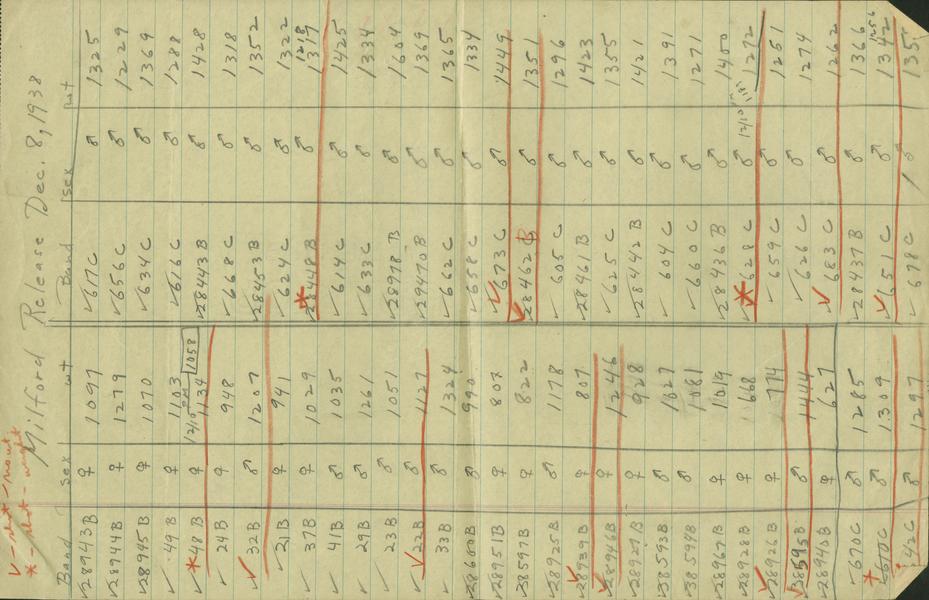 ✓ - shot - mount
* - shot - weight
Milford Release Dec. 8, 1938
Band sex wt Band sex wt
✓28943B ♀ 1097 ✓617C ♂ 1325
✓28944B ♀ 1279 ✓656C ♂ 1229
✓28945B ♀ 1070 ✓634C ♂ 1369
✓49B ♀ 1103 ✓616C ♂ 1288
✓*48B ♀ 12/10 PM 1134 1058 ✓28443B ♂ 1428
✓24B ♀ 948 ✓668C ♂ 1318
✓32B ♂ 1207 ✓28453B ♂ 1352
✓21B ♀ 941 ✓624C ♂ 1322
✓37B ♀ 1029 *✓28448B ♂ 1218 1317
✓41B ♂ 1035 ✓614C ♂ 1425
✓29B ♂ 1261 ✓633C ♂ 1334
✓23B ♂ 1051 ✓28978B ♂ 1604
✓22B ♂ 1127 ✓29470B ♂ 1369
✓33B ♂ 1324 ✓662C ♂ 1365
✓28600B ♂ 990 ✓658C ♂ 1334
✓28951B ♀ 807 ✓673C ♂ 1449
✓38597B ♀ 822 ✓28462B ♂ 1351
✓28925B ♂ 1178 ✓605C ♂ 1296
✓28939B ♀ 807 ✓28461B ♂ 1423
✓28946B ♀ 1246 ✓625C ♂ 1355
✓28927B ♀ 928 ✓28442B ♂ 1421
✓38593B ♂ 1027 ✓604C ♂ 1391
✓38594B ♂ 1081 ✓660C ♂ 1271
✓28967B ♀ 1019 ✓28436B ♂ 1400
✓28928B ♀ 668 *✓628C ♂ 12/10 1272
✓28926B ♀ 774 ✓659C ♂ 1251
✓38595B ♂ 1444 ✓626C ♂ 1274
✓28940B ♀ 627 ✓683C ♂ 1262
✓670C ♂ 1285 ✓28437B ♂ 1366
*600C ♂ 1309 ✓651C ♂ 1342 1256
642C ♂ 1297 ✓678C ♂